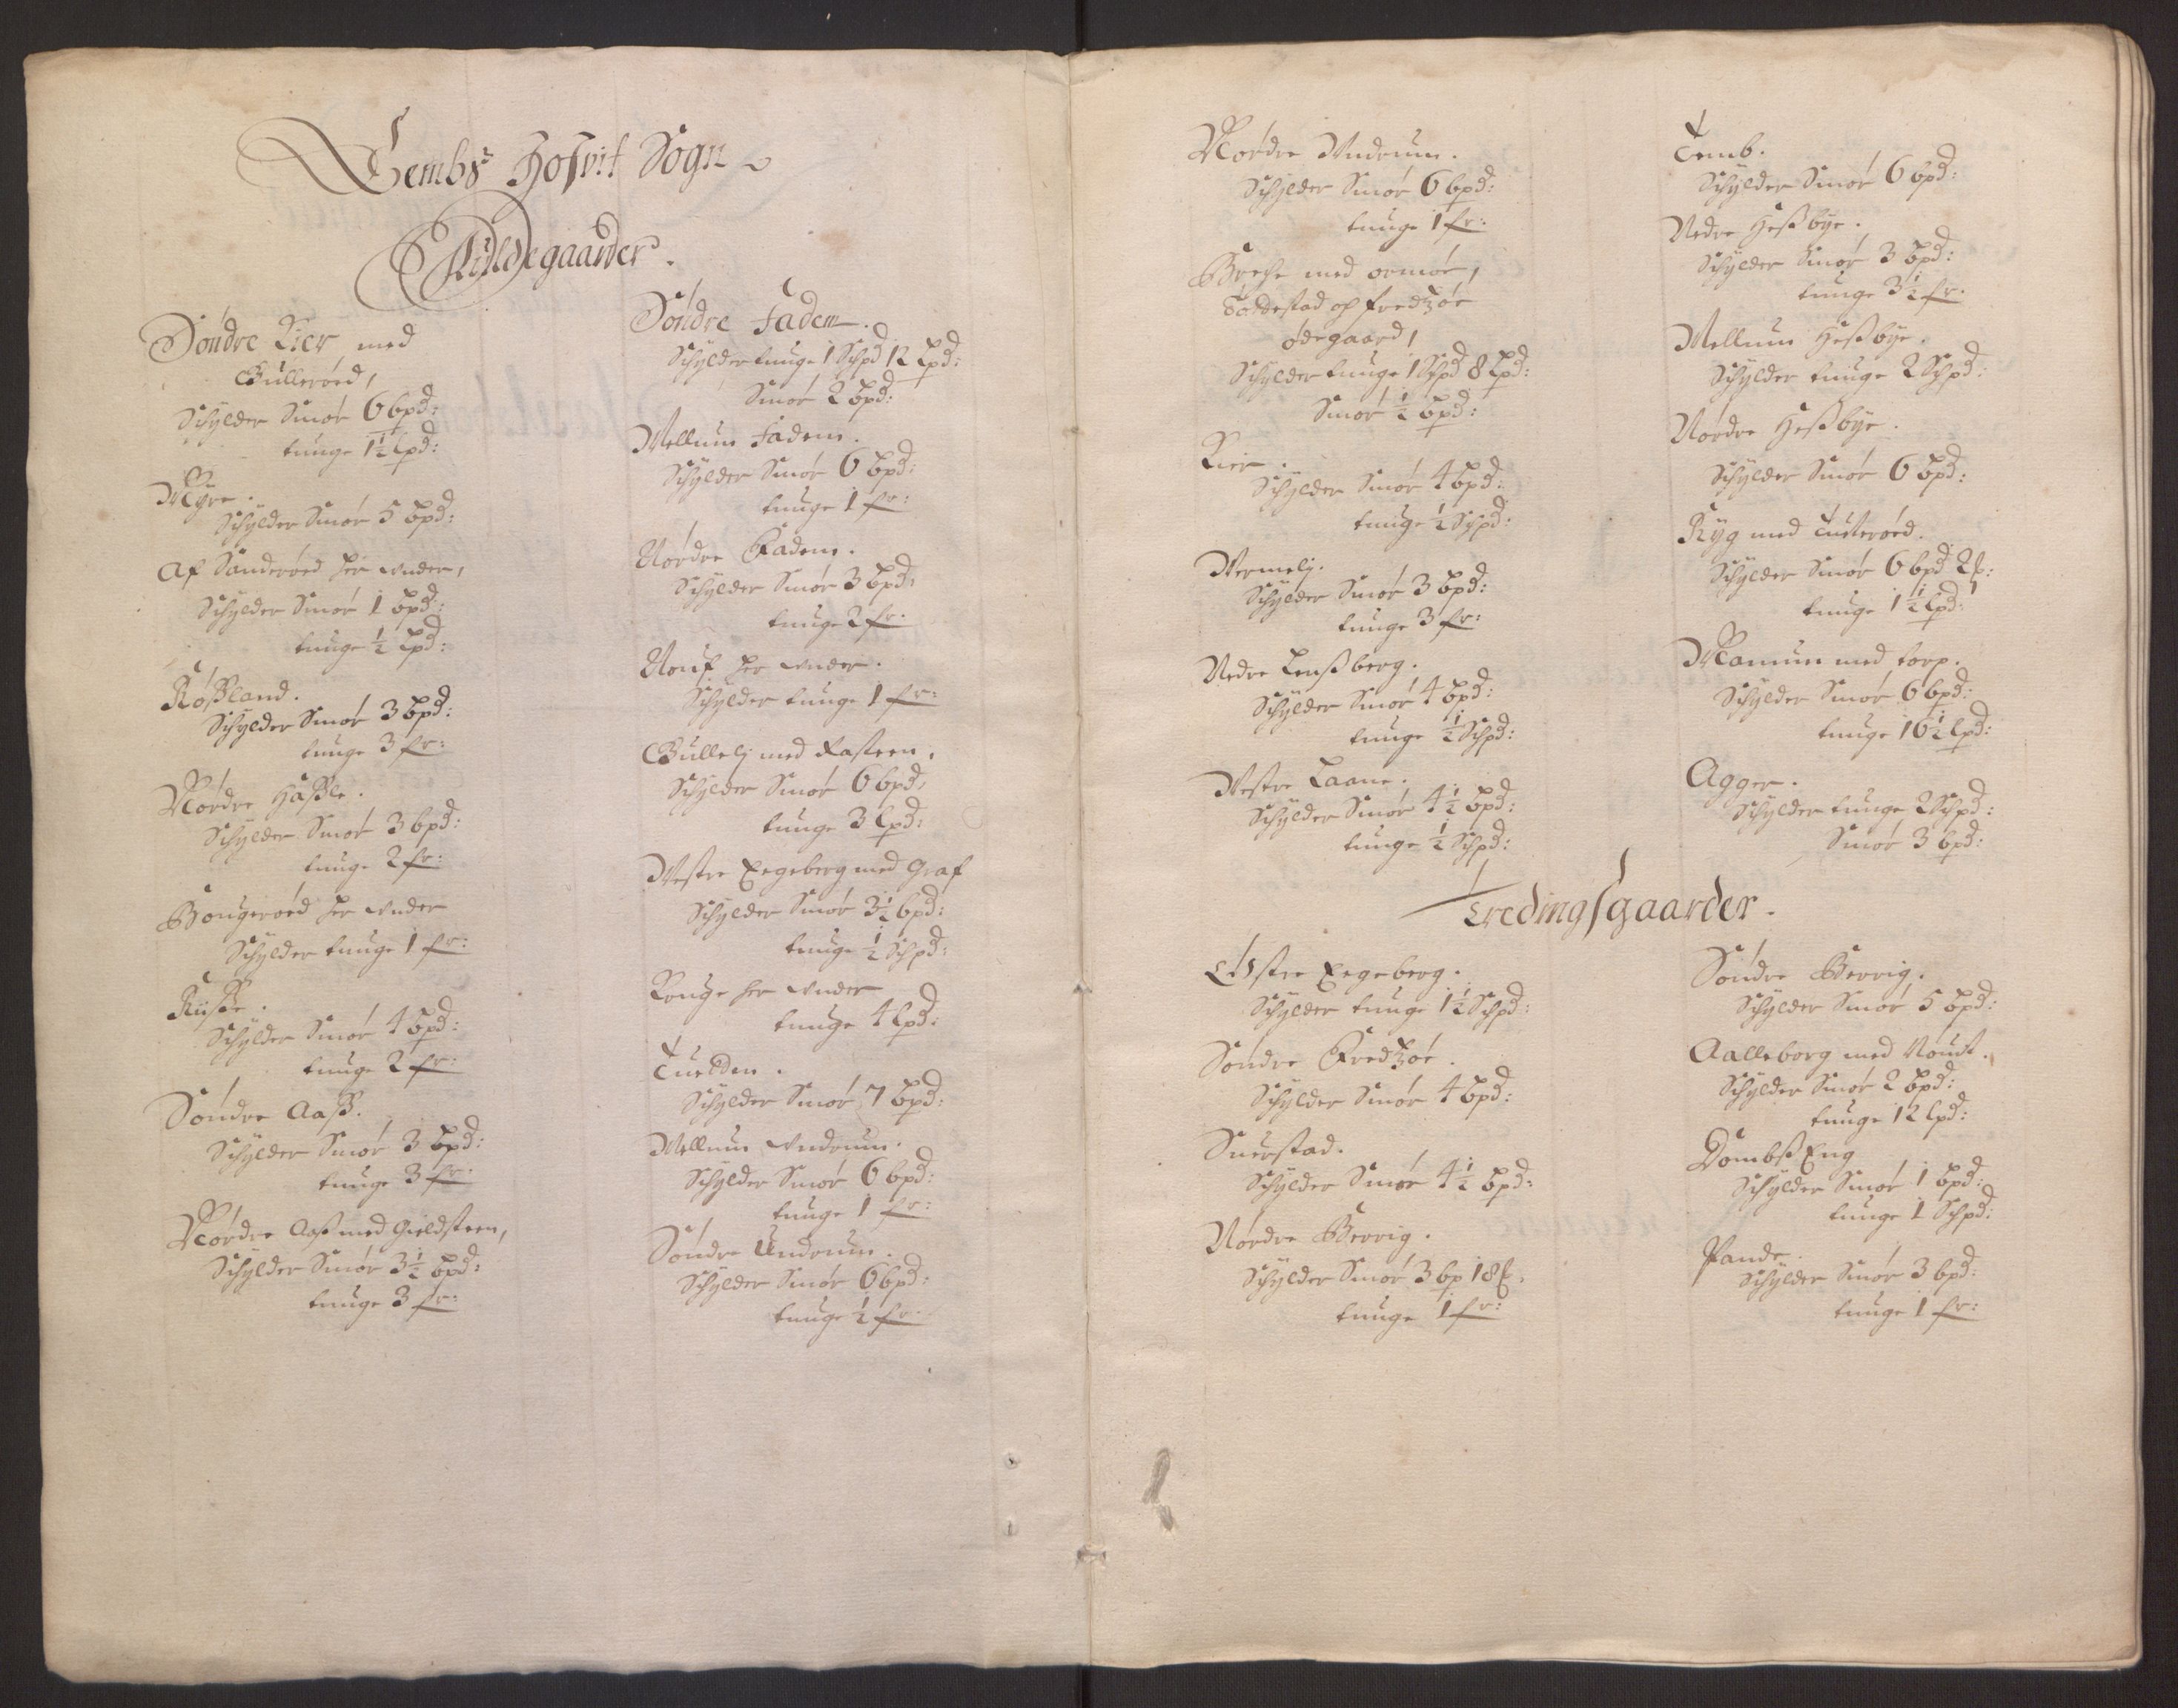 Sembs Hofvit Sogn
Fuldegaarder.
Søndre Kier med
Bullerøed,
Schylder Smør 6 bpd:
tunge 1½ lpd:
Myre.
Schylder Smør 5 bpd:
Af Sanderøed her under,
Schylder Smør 1 bpd:
tunge ½ lpd:
Røßland.
Schylder Smør 3 bpd:
tunge 3 fr:
Nørdre Haßle.
Schylder Smør 3 bpd:
tunge 2 fr:
Bougerøed her under
Schylder tunge 1 fr:
Ruße.
Schylder Smør 4 bpd:
tunge 2 fr:
Søndre Aaß.
Schylder Smør 3 bpd:
tunge 3 fr:
Nørdre Aaß med Gieldsteen,
Schylder Smør 3½ bpd:
tunge 3 fr:
Søndre Fadem.
Schylder tunge 1 Schpd 12 lpd:
Smør 2 bpd:
Mellum Fadem.
Schylder Smør 6 bpd:
tunge 1 fr:
Nørdre Fadem.
Schylder Smør 3 bpd:
tunge 2 fr:
her under.
Schylder tunge 1 fr:
Bullelj med Rasteen.
Schylder Smør 6 bpd:
tunge 3 lpd:
Vestre Eegeberg med Graf
Schylder Smør 3½ bpd:
tunge ½ Schpd:
Rouge her under
tunge 4 lpd:
Tuedden.
Schylder Smør 7 bpd:
Mellum Undrum.
Schylder Smør 6 bpd:
tunge 1 fr:
Søndre Undrum.
Schylder Smør 6 bpd:
tunge ½ fr:
Nørdre Undrum.
Schylder Smør 6 bpd:
tunge 1 fr:
Breche med ormøe,
og Fredtzøe
ødegaard,
Schylder tunge 1 Schpd 8 lpd:
Smør ½ bpd:
Kier.
Schylder Smør 4 bpd:
tunge ½ Schpd:
Vermelj.
Schylder Smør 3 bpd:
tunge 3 fr:
Nedre Lensberg.
Schylder Smør 4 bpd:
tunge ½ Schpd:
Vestre Laane.
Schylder Smør 4½ bpd:
tunge ½ Schpd:
Semb.
Schylder Smør 6 bpd:
Nedre Heßbye.
Schylder Smør 3 bpd:
tunge 3½ fr:
Mellum Heßbye.
Schylder tunge 2 Schpd:
Nordre Heßbye.
Schylder Smør 6 bpd:
Ryg med Tufterøed.
Schylder Smør 6 bpd 2
tunge 1½ lpd:
Manum med torp.
Schylder Smør 6 bpd:
tunge 16½ lpd:
Agger.
Schylder tunge 2 Schpd:
Smør 3 bpd:
 Træedingsgaarder.
Østre Eegeberg.
Schylder tunge 1½ Schpd:
Søndre Fredtzøe.
Schylder Smør 4 bpd:
Suerstad.
Schylder Smør 4½ bpd:
Nørdre Berrig.
Schylder Smør 3 bp 18
tunge 1 fr:
Søndre Berrig.
Schylder Smør 5 bpd:
Aalleborg med
Schylder Smør 2 bpd:
tunge 12 lpd:
Dombß Eng
Schylder Smør 1 bpd:
tunge 1 Schpd:
Pande.
Schylder Smør 3 bpd:
tunge 1 fr: